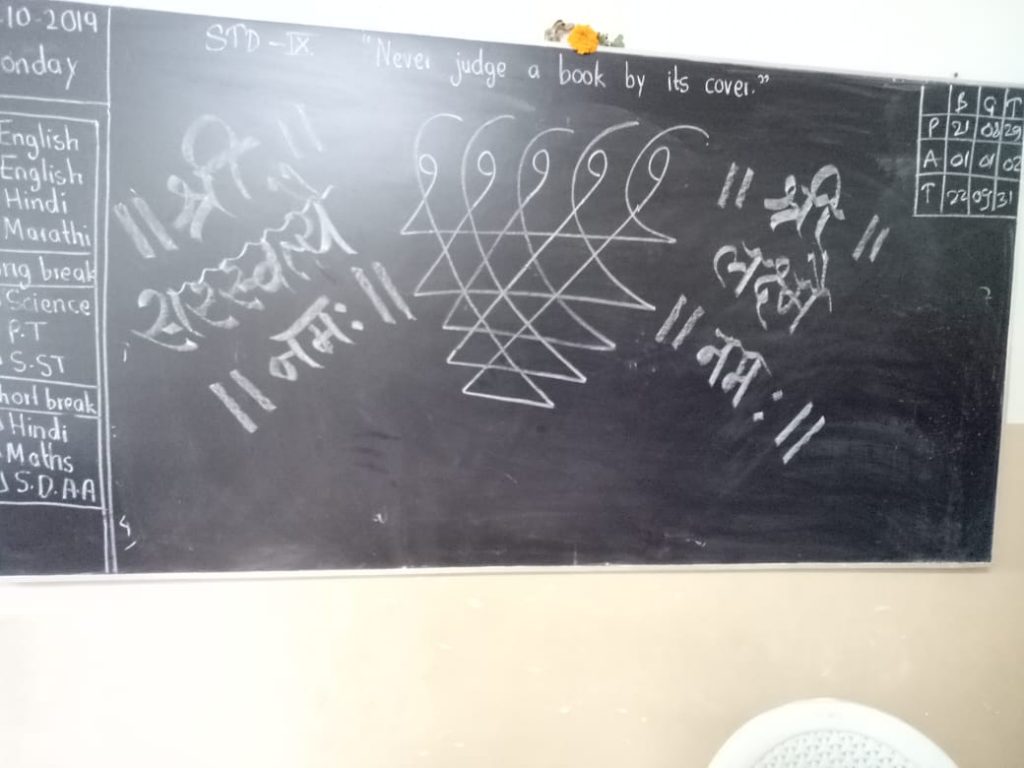 .10-2019
onday
English
English
Hindi
Marathi
break
Science
P.T
S.ST
hort break
Hindi
Maths
S.D.A.A
STD-IX.
"Never judge a book by its cover."
॥ श्री ॥
सरस्वत्ये
॥ नमः ॥
॥ श्री ॥
॥ नमः ॥
B G T
P 21 08 29
A 01 01 02
T 22 09 31